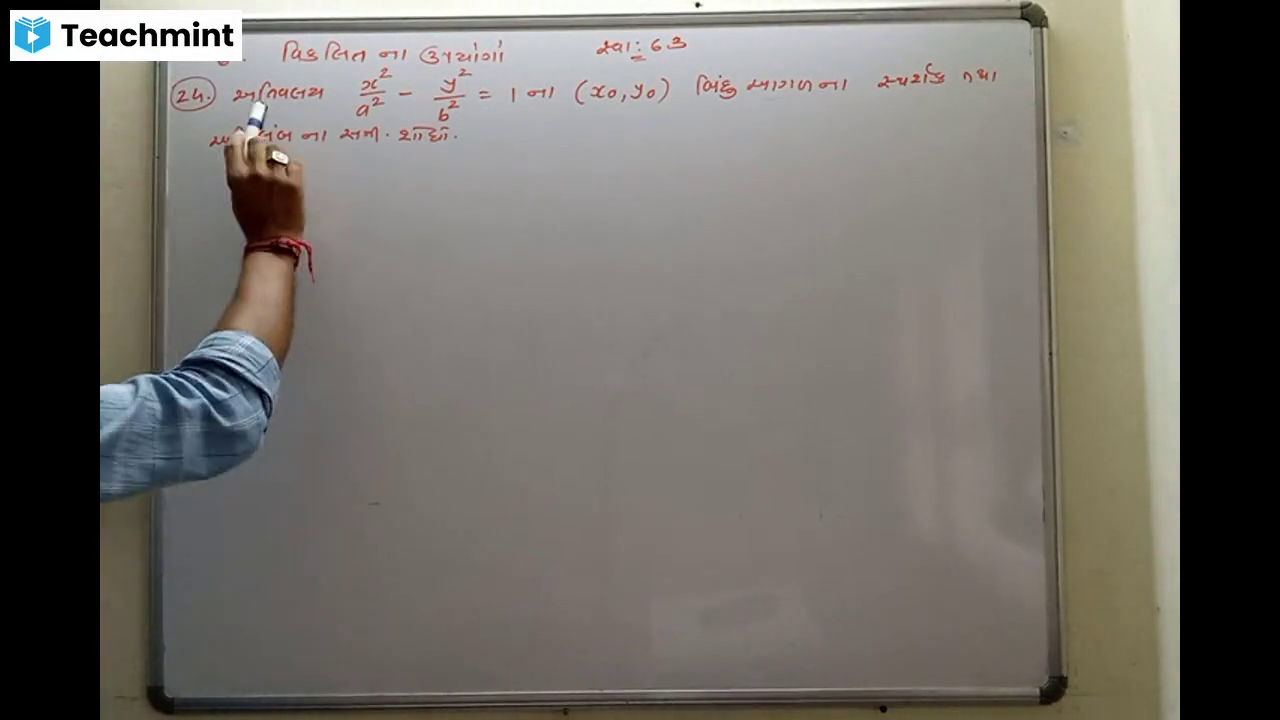 Teachmint
વિકલિત ના ઉપયોગો સ્વા: 63
24. અતિવલય x²/a² - y²/b² = 1 ના (x₀, y₀) બિંદુ આગળના સ્પર્શક તથા
ના સમી. શોધો.